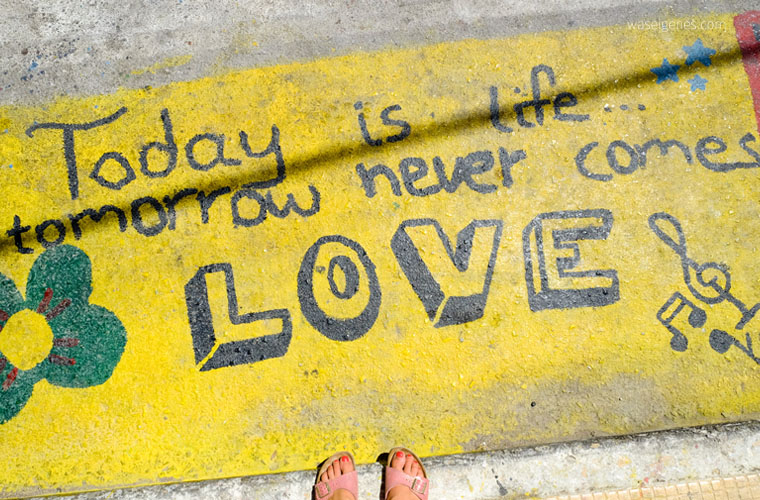 waseigenes.com
Today is life...
tomorrow never comes
LOVE